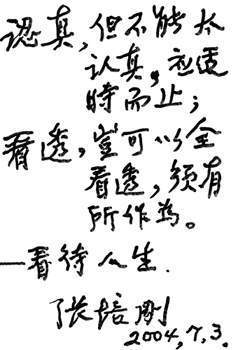 認真,但不能太
认真,应适
時而止;
看透,豈可以全
看透,须有
所作为。
—看待人生.
张培刚
2004,7,3.